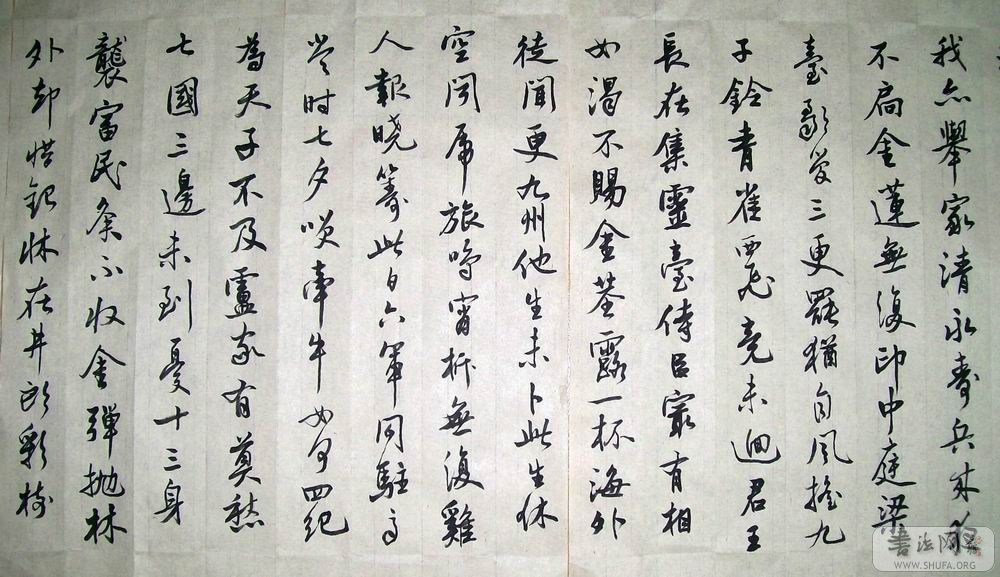 我亦舉家清永壽兵來夜
不扃金蓮無復印中庭梁
臺歌管三更罷猶自風搖九
子鈴青雀西飛竟未迴君王
長在集靈臺侍臣冣有相
如渴不賜金莖露一杯海外
徒聞更九州他生未卜此生休
空聞虎旅鳴宵柝無復雞
人報曉籌此日六軍同駐馬
當时七夕笑牽牛如何四紀
為天子不及盧家有莫愁
七國三邊未到憂十三身
襲富民侯不收金彈拋林
外却惜銀牀在井頭彩樹
書法网
WWW.SHUFA.ORG